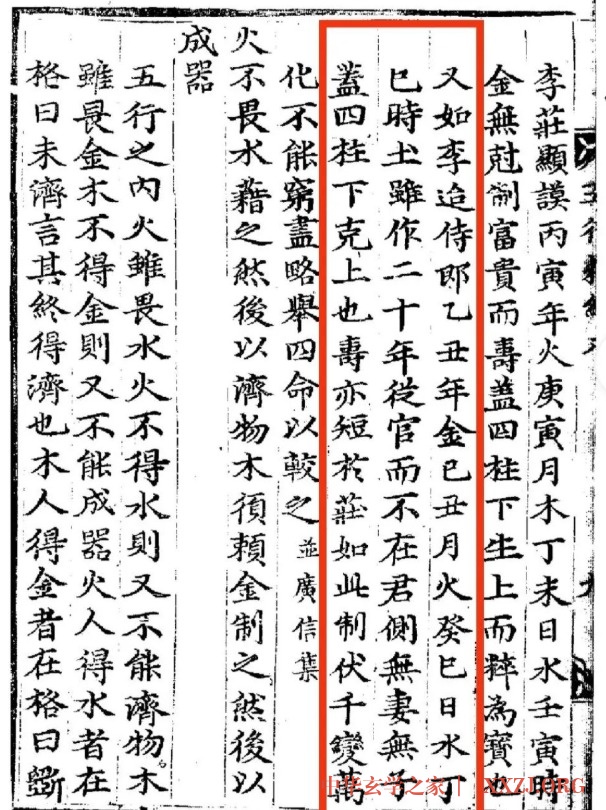 李莊顯謨丙寅年火庚寅月木丁未日水壬寅時
金無尅制富貴而壽盖四柱下生上而粹為寶也
又如李迨侍郎乙丑年金己丑月火癸巳日水丁
巳時土雖作二十年從官而不在君側無妻無
蓋四柱下克上也壽亦短於莊如此制伏千變萬
化不能窮盡略舉四命以較之並廣信集
火不畏水藉之然後以濟物木須頼金制之然後以
成器
五行之內火雖畏水火不得水則又不能濟物木
雖畏金木不得金則又不能成器火人得水者在
格曰未濟言其終得濟也木人得金者在格曰斵
中华玄学之家 | XXZJ.ORG